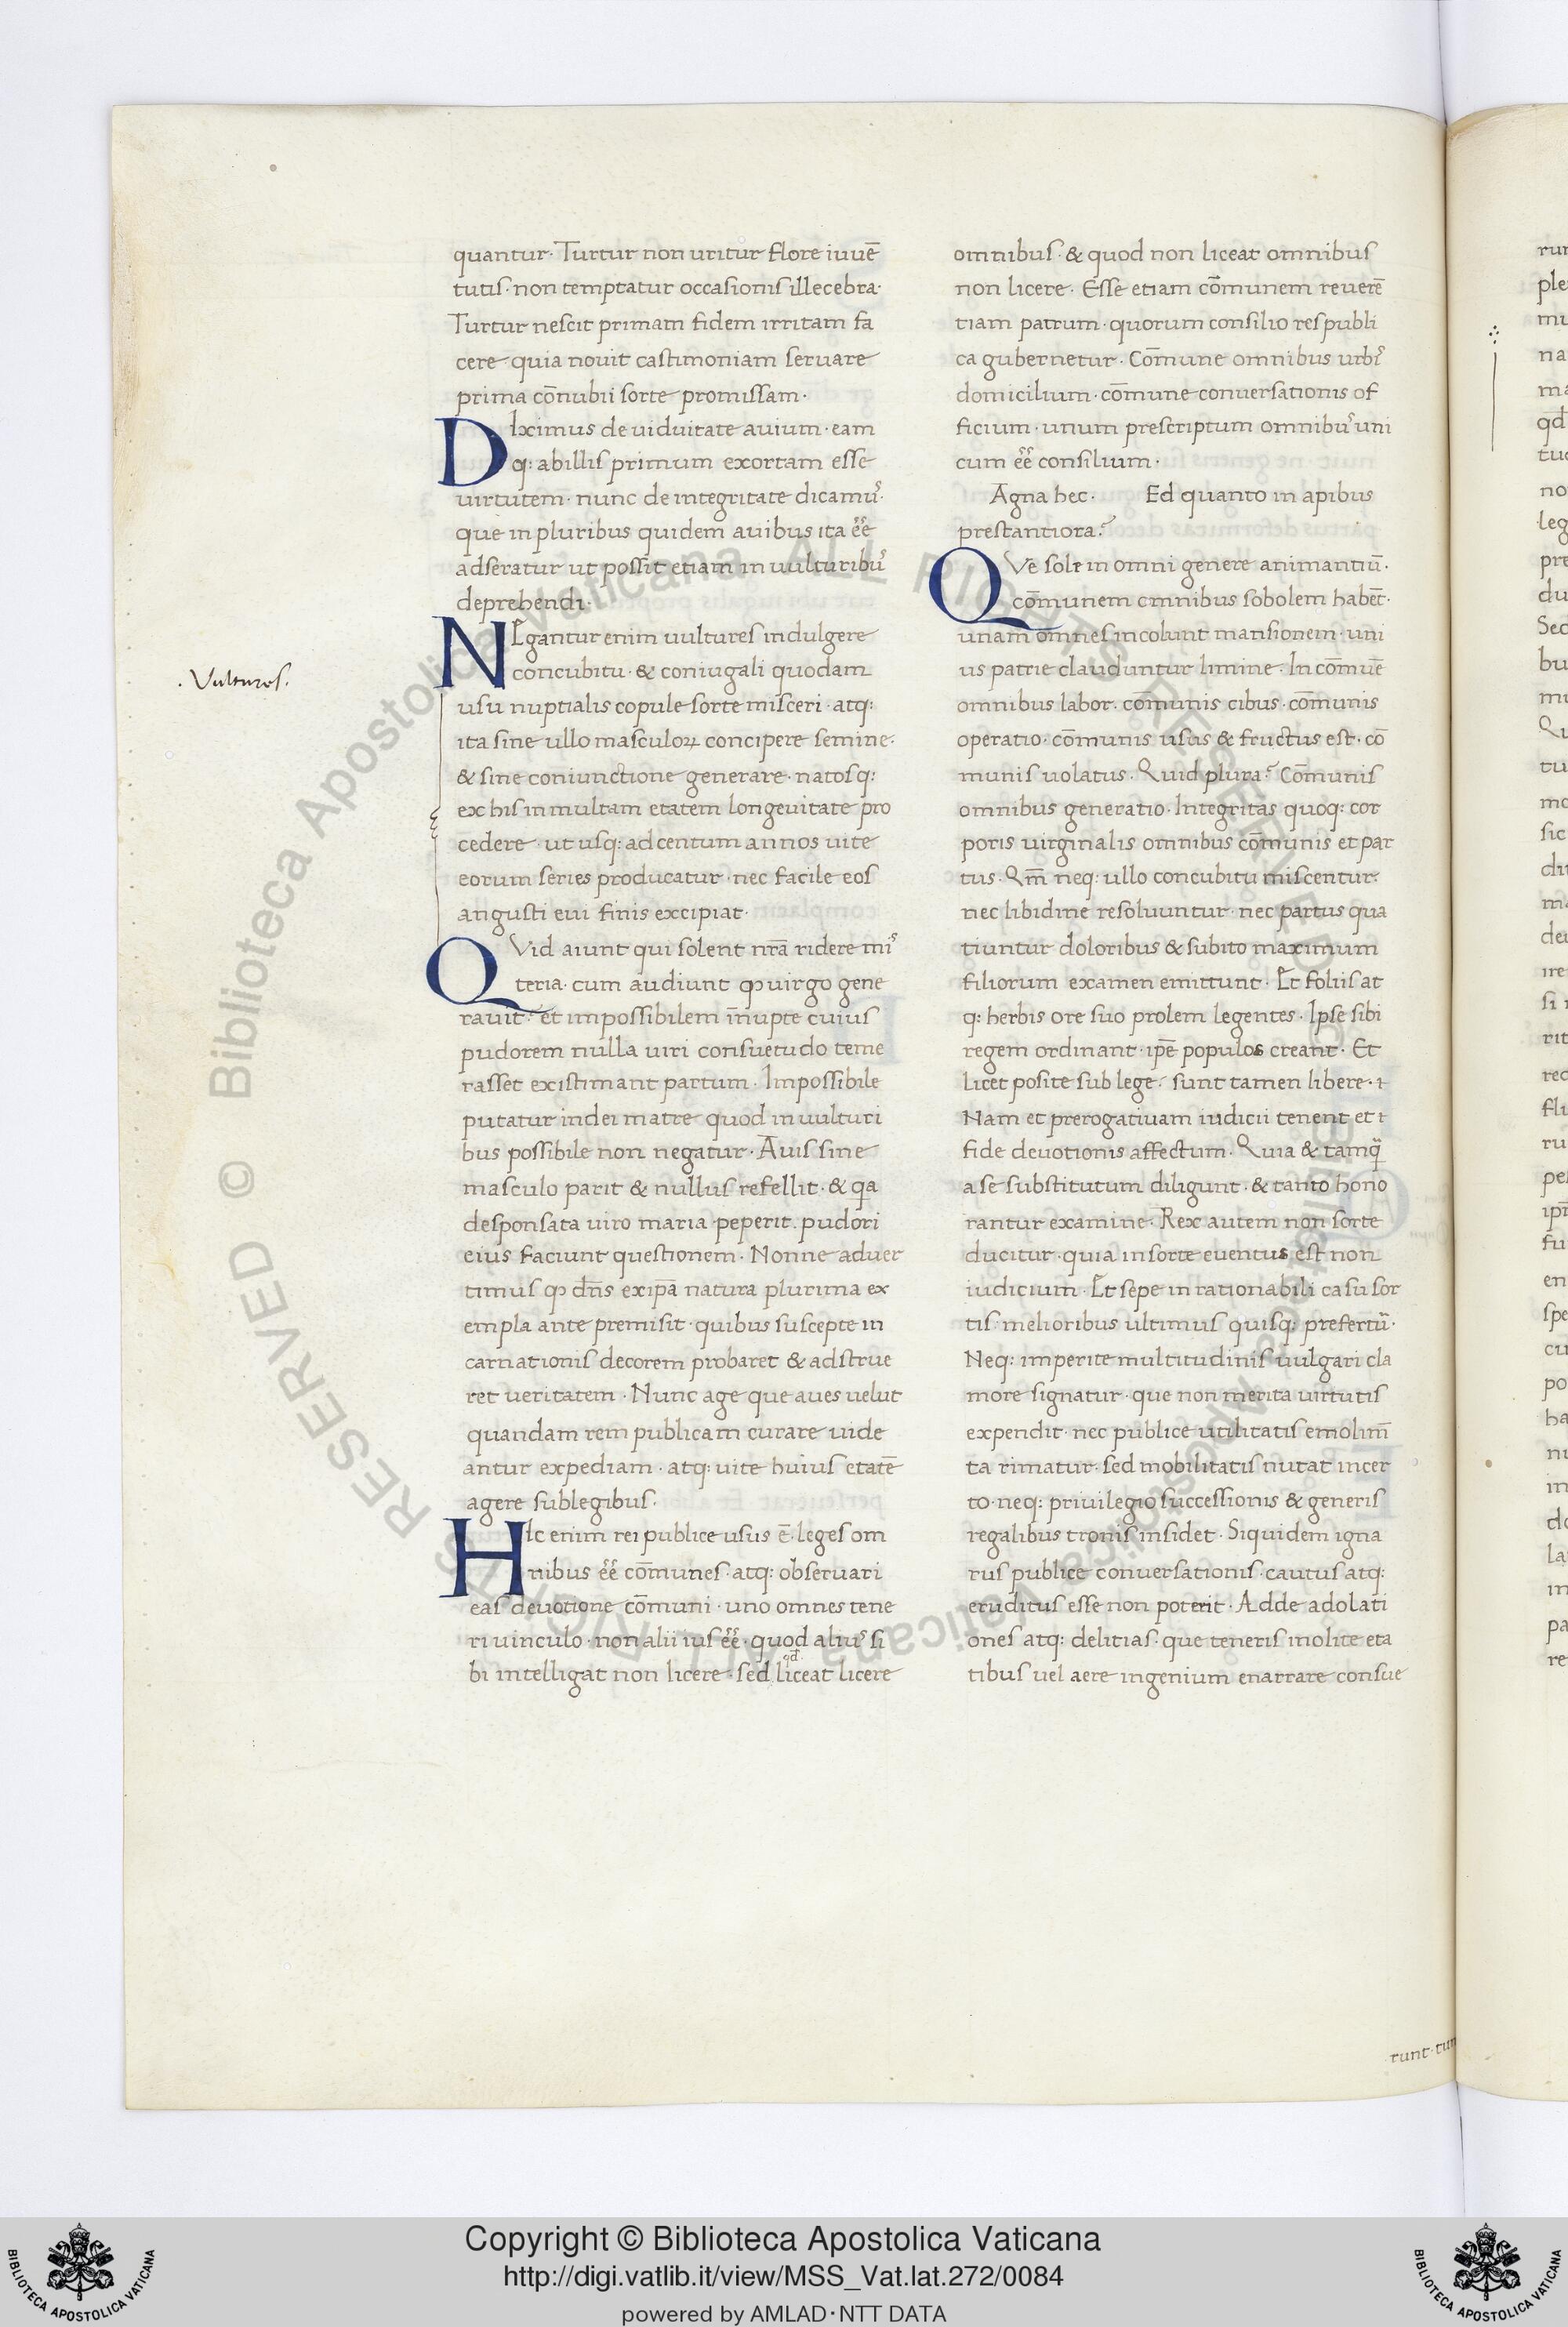 quantur· Turtur non uritur flore iuuē
tutis· non temptatur occasionis illecebra·
Turtur nescit primam fidem irritam fa
cere quia nouit castimoniam seruare
prima cōnubii sorte promissam·
DIximus de uiduitate auium· eam
q: ab illis primum exortam esse
uirtutem· nunc de integritate dicamus·
que in pluribus quidem auibus ita ēē
adseratur ut possit etiam in uulturibus
deprehendi·
NEgantur enim uultures indulgere
concubitu· & coniugali quodam
·Vultures·
usu nuptialis copule sorte misceri· atq:
ita sine ullo masculoꝝ concipere semine·
& sine coniunctione generare· natosq:
ex his in multam etatem longeuitate pro
cedere· ut usq: ad centum annos uite
eorum series producatur· nec facile eos
angusti eui finis excipiat·
QVid aiunt qui solent nrā ridere mis
teria· cum audiunt ꝙ uirgo gene
rauit· et impossibilem īnupte cuius
pudorem nulla uiri consuetudo teme
rasset existimant partum· Impossibile
putatur in dei matre quod in uulturi
bus possibile non negatur· Auis sine
masculo parit & nullus refellit· & qa
desponsata uiro maria peperit· pudori
eius faciunt questionem· Nonne aduer
timus ꝙ dn̄s ex ipā natura plurima ex
empla ante premisit· quibus suscepte in
carnationis decorem probaret & adstrue
ret ueritatem· Nunc age que aues uelut
quandam rem publicam curare uide
antur expediam· atq: uite huius etatē
agere sub legibus·
HIc enim rei publice usus ē· leges om
nibus ēē cōmunes· atq: obseruari
eas deuotione cōmuni· uno omnes tene
ri uinculo· non alii ius ēē· quod alius si
bi intelligat non licere· sed qd liceat licere
omnibus· & quod non liceat omnibus
non licere· Esse etiam cōmunem reuerē
tiam patrum· quorum consilio respubli
ca gubernetur· Cōmune omnibus urbis
domicilium· cōmune conuersationis of
ficium· unum prescriptum omnibus uni
cum ēē consilium·
Agna hec· Ed quanto in apibus
prestantiora?
QVe sole in omni genere animantiū·
cōmunem omnibus sobolem habēt·
unam omnes incolunt mansionem· uni
us patrie clauduntur limine· In cōmūe
omnibus labor· cōmunis cibus· cōmunis
operatio· cōmunis usus & fructus est· cō
munis uolatus· Quid plura? Cōmunis
omnibus generatio· Integritas quoq: cor
poris uirginalis omnibus cōmunis et par
tus· Qm̄ neq: ullo concubitu miscentur·
nec libidine resoluuntur· nec partus qua
tiuntur doloribus & subito maximum
filiorum examen emittunt· Et foliis at
q: herbis ore suo prolem legentes· Ipse sibi
regem ordinant· ipē populos creant· Et
licet posite sub lege· sunt tamen libere·
Nam et prerogatiuam iudicii tenent et
fide deuotionis affectum· Quia & tamq̄
a se substitutum diligunt· & tanto hono
rantur examine· Rex autem non sorte
ducitur· quia in sorte euentus est non
iudicium· Et sepe in rationabili casu sor
tis· melioribus ultimus quisq: prefertur·
Neq: imperite multitudinis uulgari cla
more signatur· que non merita uirtutis
expendit· nec publice utilitatis emolim̄
ta rimatur· sed mobilitatis nutat incer
to· neq: priuilegio successionis & generis
regalibus tronis insidet· Siquidem igna
rus publice conuersationis· cautus atq:
eruditus esse non poterit· Adde adolati
ones atq: delitias· que teneris inolite eta
tibus uel aere ingenium enarrare consue
runt· tum
Copyright © Biblioteca Apostolica Vaticana
http://digi.vatlib.it/view/MSS_Vat.lat.272/0084
powered by AMLAD·NTT DATA
BIBLIOTECA APOSTOLICA VATICANA
BIBLIOTECA APOSTOLICA VATICANA